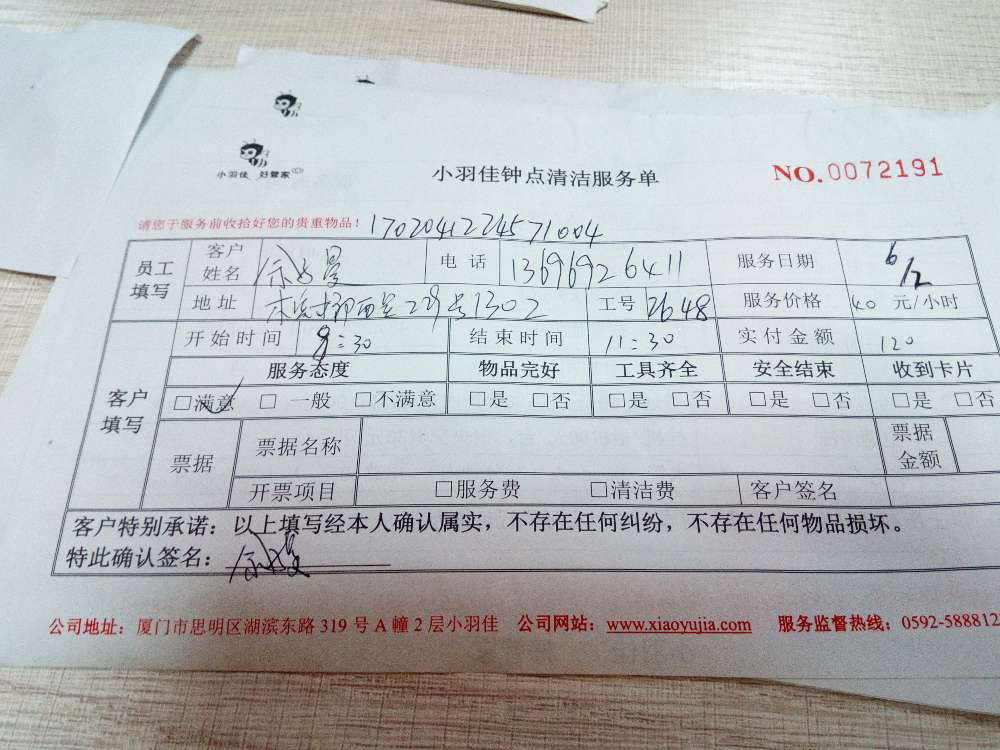 小羽佳 好管家
小羽佳钟点清洁服务单
NO.0072191
请您于服务前收拾好您的贵重物品！ 1702041224571004
员工填写 客户姓名 电话 13696926411 服务日期 6/2
地址 29号1302 工号 2648 服务价格 40 元/小时
客户填写 开始时间 8:30 结束时间 11:30 实付金额 120
服务态度 物品完好 工具齐全 安全结束 收到卡片
□满意 □ 一般 □不满意 □是 □否 □是 □否 □是 □否 □是 □否
票据 票据名称 票据金额
开票项目 □服务费 □清洁费 客户签名
客户特别承诺：以上填写经本人确认属实，不存在任何纠纷，不存在任何物品损坏。
特此确认签名：
公司地址：厦门市思明区湖滨东路 319 号 A 幢 2 层小羽佳 公司网站：www.xiaoyujia.com 服务监督热线：0592-588812